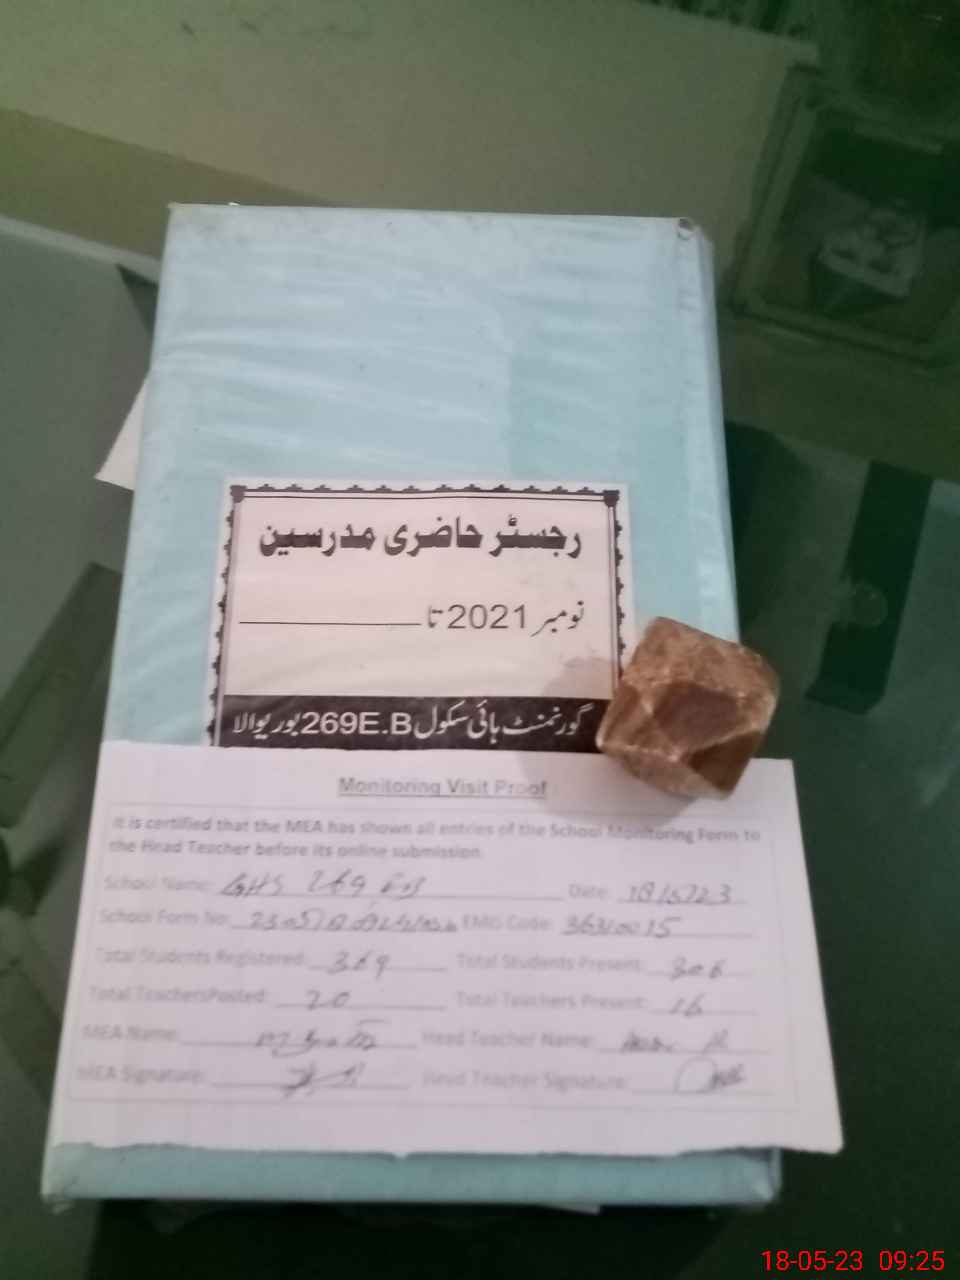 رجسٹر حاضری مدرسین
نومبر 2021 تا
گورنمنٹ ہائی سکول 269E.B بوریوالا
Monitoring Visit Proof
It is certified that the MEA has shown all entries of the School Monitoring Form to
the Head Teacher before its online submission.
School Name: GHS 269, EB Date: 18/5/23
School Form No: EMIS Code: 36310015
Total Students Registered: 369 Total Students Present: 306
Total TeachersPosted: 20 Total Teachers Present: 16
MEA Name: Head Teacher Name:
MEA Signature: Head Teacher Signature:
18-05-23 09:25